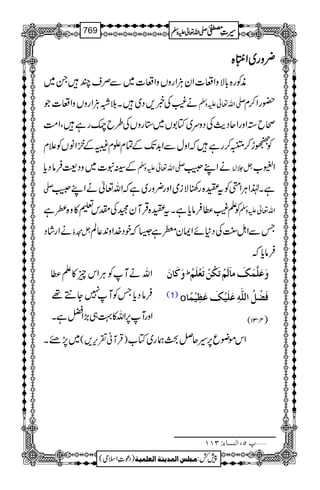 سیرتِ مصطفیٰ صلی اللہ تعالیٰ علیہ وسلم
769
ضروری انتباہ
مذکورہ بالا واقعات ان ہزاروں واقعات میں سے صرف چند ہیں جن میں
حضور اکرم صلی اللہ تعالیٰ علیہ وسلم نے غیب کی خبریں دی ہیں۔ بلاشبہ ہزاروں واقعات جو
صحاح ستہ اور احادیث کی دوسری کتابوں میں ستاروں کی طرح چمک رہے ہیں، امت
کو جھنجھوڑ کر متنبہ کر رہے ہیں کہ اول سے ابد تک کے تمام علوم غیبیہ کے خزانوں کو علام
الغیوب جل جلالہ نے اپنے حبیب صلی اللہ تعالیٰ علیہ وسلم کے سینۂ نبوت میں ودیعت فرما دیا
ہے۔ لہٰذا ہر امتی کو یہ عقیدہ رکھنا لازمی اور ضروری ہے کہ اللہ تعالیٰ نے اپنے حبیب صلی
اللہ تعالیٰ علیہ وسلم کو علم غیب عطا فرمایا ہے۔ یہ عقیدہ قرآن مجید کی مقدس تعلیم کا وہ عطر ہے
جس سے اہل سنت کی دنیائے ایمان معطر ہے جیسا کہ خود خداوند عالم جل مجدہ نے ارشاد
فرمایا کہ
وَعَلَّمَكَ مَا لَمْ تَكُنْ تَعْلَمُ ؕ وَكَانَ
اللہ نے آپ کو ہر اس چیز کا علم عطا
فَضْلُ اللّٰهِ عَلَيْكَ عَظِيْمًا ۝ (1)
فرما دیا جس کو آپ نہیں جانتے تھے
اور آپ پر اللہ کا بہت ہی بڑا فضل ہے۔
اس موضوع پر سیر حاصل بحث ہماری کتاب (قرآنی تقریریں) میں پڑھیے۔
پ ۵، النساء: ۱۱۳
پیش کش: مجلس المدينة العلمية (دعوتِ اسلامی)